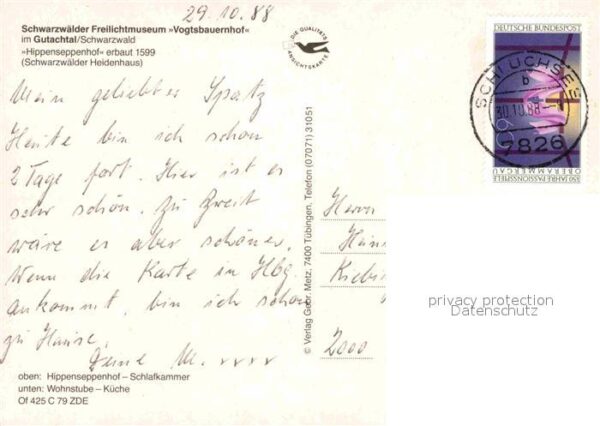 29.10.88
Schwarzwälder Freilichtmuseum »Vogtsbauernhof«
im Gutachtal/Schwarzwald
»Hippenseppenhof« erbaut 1599
(Schwarzwälder Heidenhaus)
DIE QUALITÄTS
ANSICHTSKARTE
DEUTSCHE BUNDESPOST
SCHLUCHSEE
b
30.10.88
7826
60
350 JAHRE PASSIONSSPIELE
OBERAMMERGAU
Mein geliebter Spatz
Heute bin ich schon
2 Tage fort. Hier ist es
sehr schön. Zu Zweit
wäre es aber schöner.
Wenn die Karte in Hbg.
ankommt, bin ich schon
zu Hause.
Deine M. xxxx
© Verlag Gebr. Metz, 7400 Tübingen, Telefon (07071) 31051
Herrn
2000
privacy protection
Datenschutz
oben: Hippenseppenhof – Schlafkammer
unten: Wohnstube – Küche
Of 425 C 79 ZDE